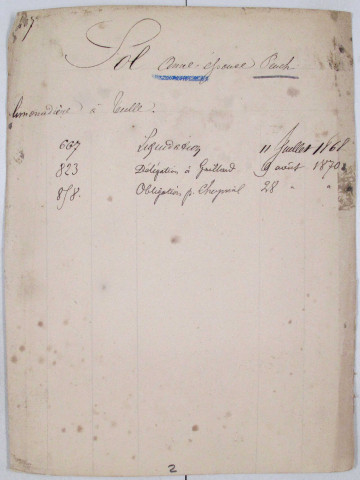 Sol Anne épouse Puech
limonadière à Tulle :
667 Liquidation 11 Juillet 1868
823 Délégation à Gaillard 9 août 1870
858. Obligation p. Cheyrial 28 " "
2